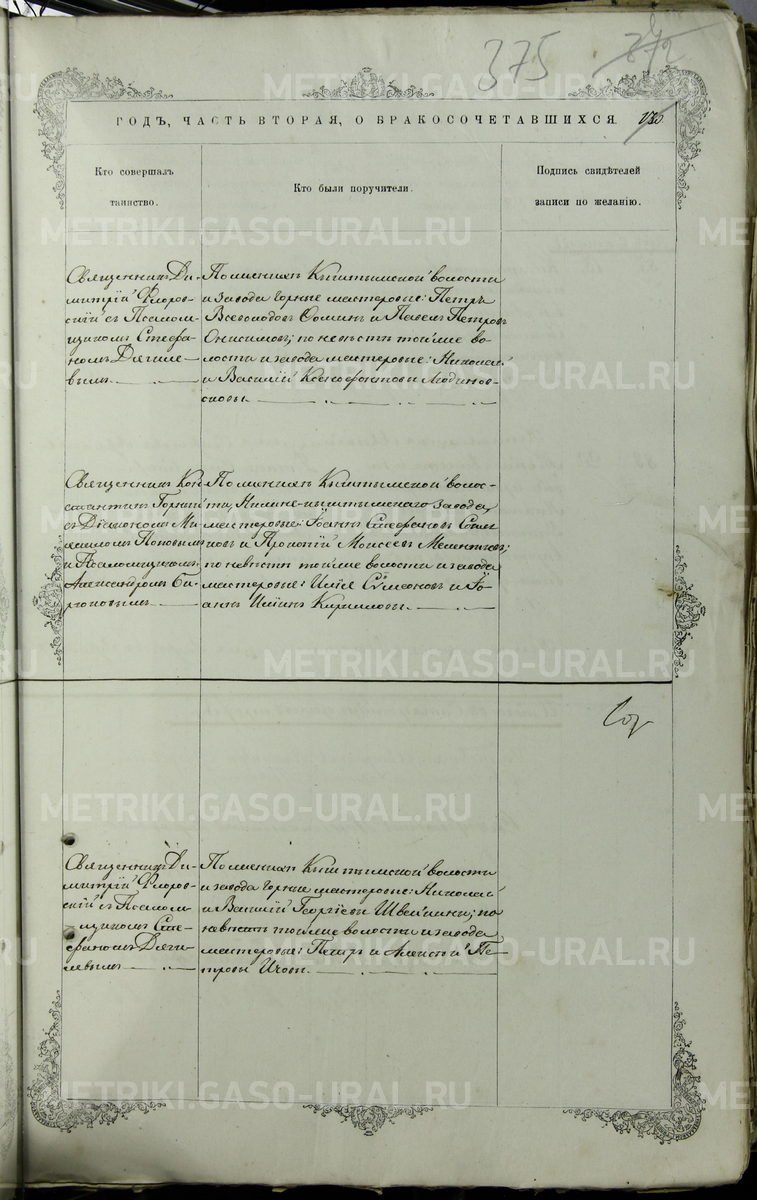 375
372
ГОДЪ, ЧАСТЬ ВТОРАЯ, О БРАКОСОЧЕТАВШИХСЯ.
Кто совершалъ таинство.
Кто были поручители.
Подпись свидѣтелей записи по желанію.
Священникъ Ди-
митрій Флоров-
скій съ Псалом-
щикомъ Стефа-
номъ Дягиле-
вымъ
По женихѣ Кыштымской волости
и завода горные мастеровые: Петръ
Всеволодовъ Ѳоминъ и Павелъ Петровъ
Онисимовъ; по невѣстѣ той же во-
лости и завода мастеровые: Николай
и Василій Ксенофонтовы Людинов-
сковы
Священникъ Кон
стантинъ Горный
съ Діакономъ Ми-
хаиломъ Поповымъ
и Псаломщикомъ
Александромъ Би-
рюковымъ
По женихѣ Кыштымской волос-
ти, Нижне-кыштымскаго завода
мастеровые: Іоаннъ Стефановъ
и Прокопій Моисеевъ
по невѣстѣ той же волости и завода
мастеровые: Илія Сѵмеоновъ и Іо-
аннъ Кирилловы
Священникъ Ди-
митрій Флоров-
скій съ Псалом-
щикомъ Сте-
фаномъ Дяги-
левымъ
По женихѣ Кыштымской волости
и завода горные мастеровые: Николай
и Василій Георгіевы Швейкины; по
невѣстѣ той же волости и завода
мастеровые: Петръ и Алексѣй Пе-
тровы
METRIKI.GASO-URAL.RU